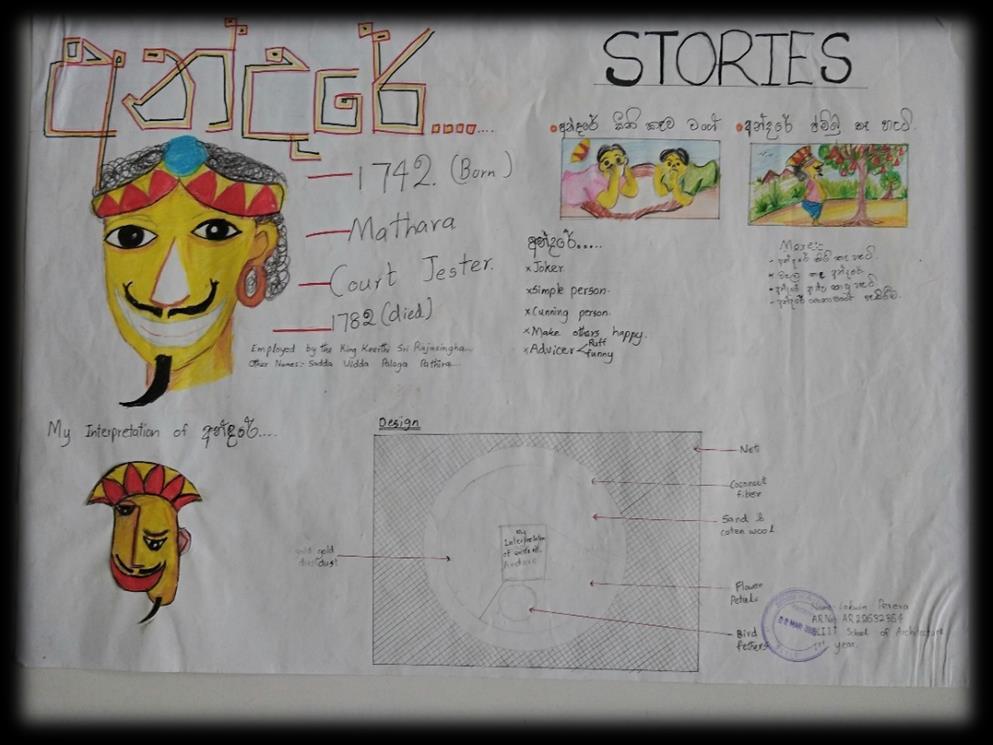 අන්දරේ........
STORIES
1742. (Born)
Mathara
Court Jester.
1782 (died)
Employed by the King Keerthi Sri Rajasingha...
Other Names:- Sadda Vidda Paloga Pathira...
අන්දරේ සීනි කෑව වගේ
අන්දරේ ජම්බු කෑ හැටි
අන්දරේ.....
x Joker
x Simple person.
x Cunning person.
x Make others happy.
x Advicer < Ruff
funny
More:-
My Interpretation of අන්දරේ....
Design
Net
Coconut
fiber
Sand &
coten wool
Flower
Petals
Bird
fethers
gold
dust
My
Interpretation
of
Name: Lakwin Perera
School of Architecture
1st year